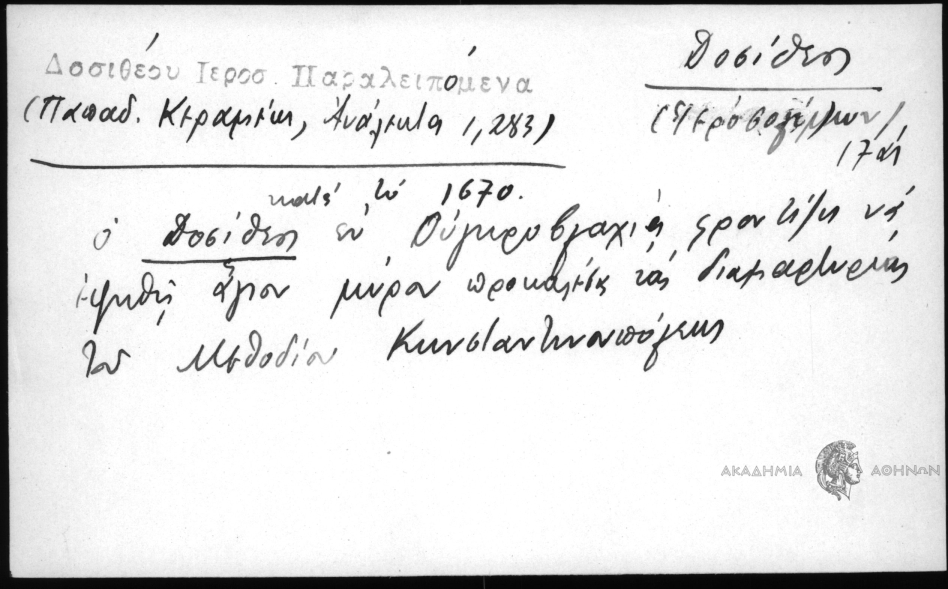 Δοσιθέου Ιεροσ. Παραλειπόμενα
(Παπαδ. Κεραμέως, Ἀνάλεκτα 1,283)
Δοσίθεος
(Ἱεροσολύμων)
17ος
κατά τό 1670.
ὁ Δοσίθεος ἐν Οὑγκροβλαχίᾳ φροντίζει νά
ἑψηθῇ ἅγιον μύρον προκαλέσας τάς διαμαρτυρίας
τοῦ Μεθοδίου Κωνσταντινουπόλεως
ΑΚΑΔΗΜΙΑ ΑΘΗΝΩΝ